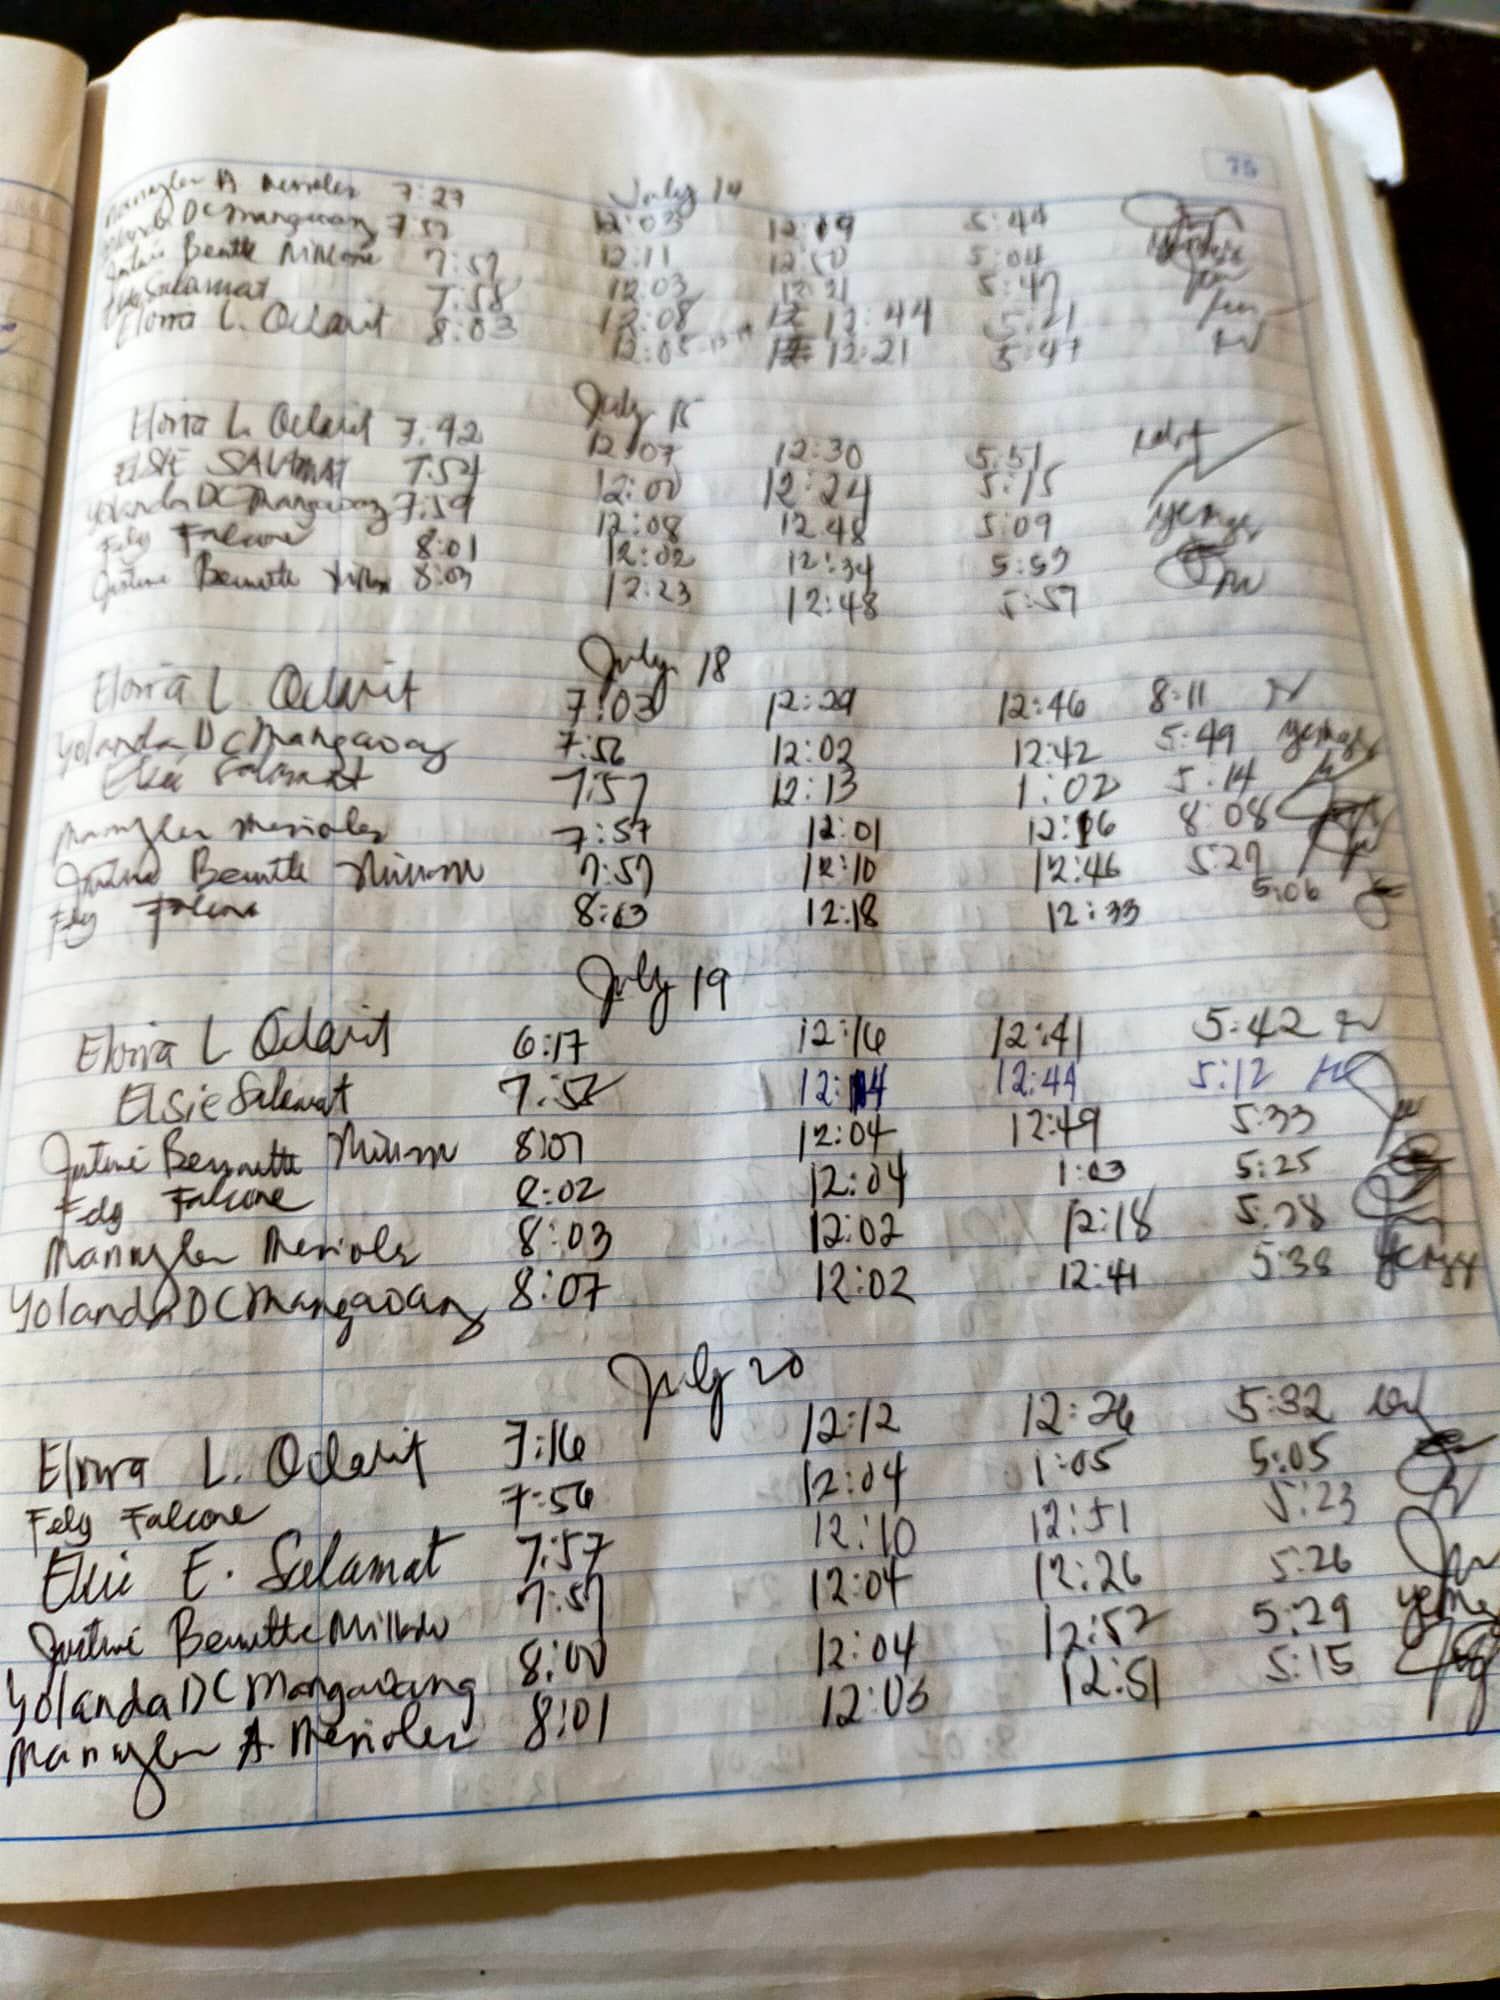 75
July 14
A Merioles 7:27 12:03 12:19 5:44
DC Mangaoang 7:57 12:11 12:50 5:04
Bennette 7:57 12:03 12:21 5:47
Salamat 7:58 12:08 12:44 5:21
Elovra L. Odavit 8:03 12:05 12:21 5:47
July 15
Elovra L. Odavit 7:42 12:07 12:30 5:51
ELSIE SALAMAT 7:54 12:00 12:24 5:15
Yolanda DC Mangaoang 7:59 12:08 12:48 5:09
Fely Falcone 8:01 12:02 12:34 5:53
Justine Bennette 8:03 12:23 12:48 5:57
July 18
Elovra L. Odavit 7:03 12:29 12:46 8:11
Yolanda DC Mangaoang 7:56 12:02 12:42 5:49
Elsie Salamat 7:57 12:13 1:02 5:14
Merioles 7:57 12:01 12:16 8:08
Justine Bennette 7:57 12:10 12:46 5:27
Fely Falcone 8:03 12:18 12:33 5:06
July 19
Elovra L Odavit 6:17 12:16 12:41 5:42
Elsie Salamat 7:58 12:14 12:44 5:12
Justine Bennette 8:01 12:04 12:49 5:33
Fely Falcone 8:02 12:04 1:03 5:25
Merioles 8:03 12:02 12:18 5:28
Yolanda DC Mangaoang 8:07 12:02 12:41 5:38
July 20
Elovra L. Odavit 7:16 12:12 12:26 5:32
Fely Falcone 7:56 12:04 1:05 5:05
Elsie E. Salamat 7:57 12:10 12:51 5:23
Justine Bennette 7:57 12:04 12:26 5:26
Yolanda DC Mangaoang 8:00 12:04 12:52 5:29
A Merioles 8:01 12:03 12:51 5:15